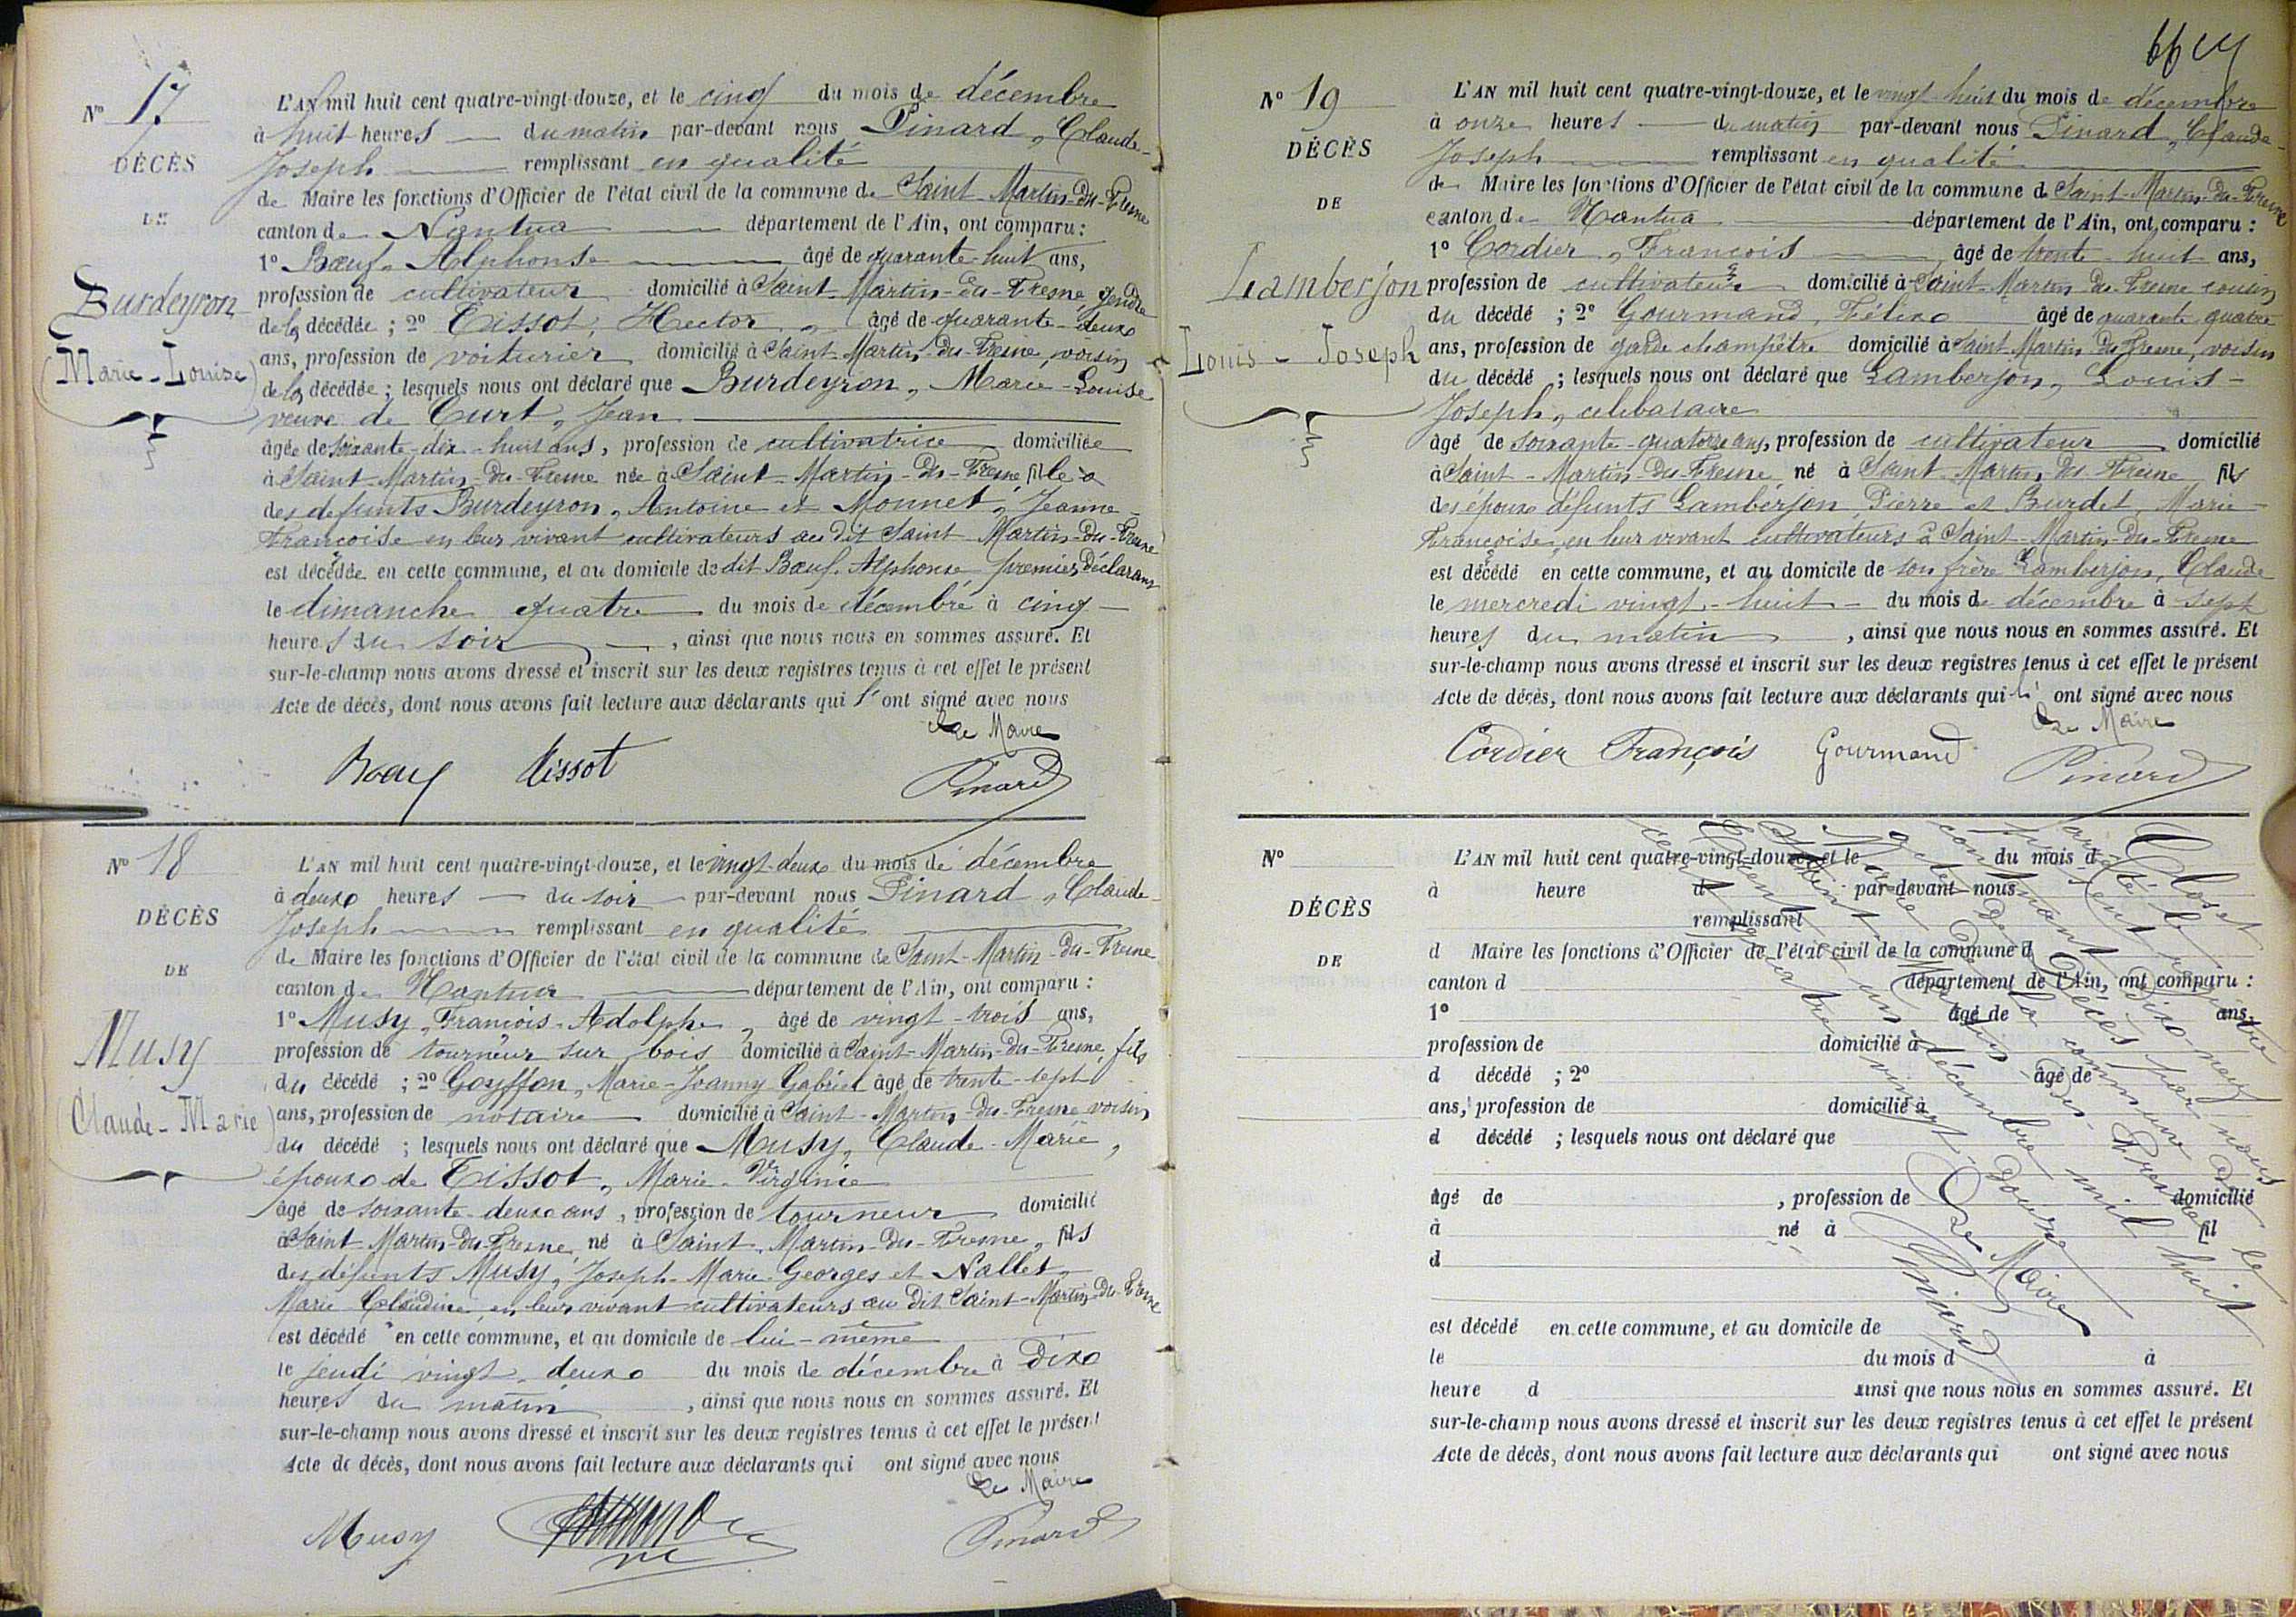 Nº 17
DÉCÈS
DE
Burdeyron
(Marie-Louise)
L'AN mil huit cent quatre-vingt-douze, et le cinq du mois de décembre
à huit heures du matin par-devant nous Pinard, Claude-
Joseph remplissant en qualité
de Maire les fonctions d'Officier de l'état civil de la commune de Saint-Martin-du-Fresne
canton de Nantua département de l'Ain, ont comparu :
1º Bœuf, Alphonse âgé de quarante-huit ans,
profession de cultivateur domicilié à Saint-Martin-du-Fresne, gendre
de la décédée ; 2º Tissot, Hector, âgé de quarante-deux
ans, profession de voiturier domicilié à Saint-Martin-du-Fresne, voisin
de la décédée ; lesquels nous ont déclaré que Burdeyron, Marie-Louise
veuve de Curt, Jean
âgée de soixante-dix-huit ans, profession de cultivatrice domiciliée
à Saint-Martin-du-Fresne née à Saint-Martin-du-Fresne fille
des défunts Burdeyron, Antoine et Monnet, Jeanne-
Françoise en leur vivant cultivateurs au dit Saint-Martin-du-Fresne
est décédée en cette commune, et au domicile de dit Bœuf, Alphonse premier déclarant
le dimanche quatre du mois de décembre à cinq
heures du soir, ainsi que nous nous en sommes assuré. Et
sur-le-champ nous avons dressé et inscrit sur les deux registres tenus à cet effet le présent
Acte de décès, dont nous avons fait lecture aux déclarants qui l'ont signé avec nous
Le Maire
Boeuf Tissot Pinard
Nº 18
DÉCÈS
DE
Musy
(Claude-Marie)
L'AN mil huit cent quatre-vingt-douze, et le vingt-deux du mois de décembre
à deux heures du soir par-devant nous Pinard, Claude-
Joseph remplissant en qualité
de Maire les fonctions d'Officier de l'état civil de la commune de Saint-Martin-du-Fresne
canton de Nantua département de l'Ain, ont comparu :
1º Musy, François-Adolphe, âgé de vingt-trois ans,
profession de tourneur sur bois domicilié à Saint-Martin-du-Fresne, fils
du décédé ; 2º Goyffon, Marie-Joanny Gabriel âgé de trente-sept
ans, profession de notaire domicilié à Saint-Martin-du-Fresne voisin
du décédé ; lesquels nous ont déclaré que Musy, Claude-Marie,
époux de Tissot, Marie-Virginie
âgé de soixante-deux ans, profession de tourneur domicilié
à Saint-Martin-du-Fresne, né à Saint-Martin-du-Fresne, fils
des défunts Musy, Joseph-Marie-Georges et Nallet,
Marie Claudine en leur vivant cultivateurs au dit Saint-Martin-du-Fresne
est décédé en cette commune, et au domicile de lui-même
le jeudi vingt-deux du mois de décembre à dix
heures du matin, ainsi que nous nous en sommes assuré. Et
sur-le-champ nous avons dressé et inscrit sur les deux registres tenus à cet effet le présent
Acte de décès, dont nous avons fait lecture aux déclarants qui ont signé avec nous
Le Maire
Musy Pinard
Nº 19
DÉCÈS
DE
Lamberjon
Louis-Joseph
L'AN mil huit cent quatre-vingt-douze, et le vingt-huit du mois de décembre
à onze heures du matin par-devant nous Pinard, Claude-
Joseph remplissant en qualité
de Maire les fonctions d'Officier de l'état civil de la commune de Saint-Martin-du-Fresne
canton de Nantua département de l'Ain, ont comparu :
1º Cordier, François âgé de trente-huit ans,
profession de cultivateur domicilié à Saint-Martin-du-Fresne cousin
du décédé ; 2º Gourmand, Félix âgé de quarante quatre
ans, profession de garde champêtre domicilié à Saint-Martin-du-Fresne, voisin
du décédé ; lesquels nous ont déclaré que Lamberjon, Louis-
Joseph, célibataire
âgé de soixante-quatorze ans, profession de cultivateur domicilié
à Saint-Martin-du-Fresne né à Saint-Martin-du-Fresne fils
des époux défunts Lamberjon, Pierre et Burdet, Marie-
Françoise, en leur vivant cultivateurs à Saint-Martin-du-Fresne
est décédé en cette commune, et au domicile de son frère Lamberjon, Claude
le mercredi vingt-huit du mois de décembre à sept
heures du matin, ainsi que nous nous en sommes assuré. Et
sur-le-champ nous avons dressé et inscrit sur les deux registres tenus à cet effet le présent
Acte de décès, dont nous avons fait lecture aux déclarants qui l'ont signé avec nous
Le Maire
Cordier François Gourmand Pinard
Nº
DÉCÈS
DE
L'AN mil huit cent quatre-vingt-douze, et le du mois d
à heure d par-devant nous
remplissant
d Maire les fonctions d'Officier de l'état civil de la commune d
canton d département de l'Ain, ont comparu :
1º âgé de ans,
profession de domicilié à
d décédé ; 2º âgé de
ans, profession de domicilié à
d décédé ; lesquels nous ont déclaré que
âgé de , profession de domicilié
à né à fil
d
est décédé en cette commune, et au domicile de
le du mois d à
heure d ainsi que nous nous en sommes assuré. Et
sur-le-champ nous avons dressé et inscrit sur les deux registres tenus à cet effet le présent
Acte de décès, dont nous avons fait lecture aux déclarants qui ont signé avec nous
Clos et
arrêté le présent registre
contenant dix-neuf
actes de décès par nous
Maire de la commune de
Saint-Martin-du-Fresne le
trente-un décembre mil huit
cent quatre-vingt-douze
Le Maire
Pinard